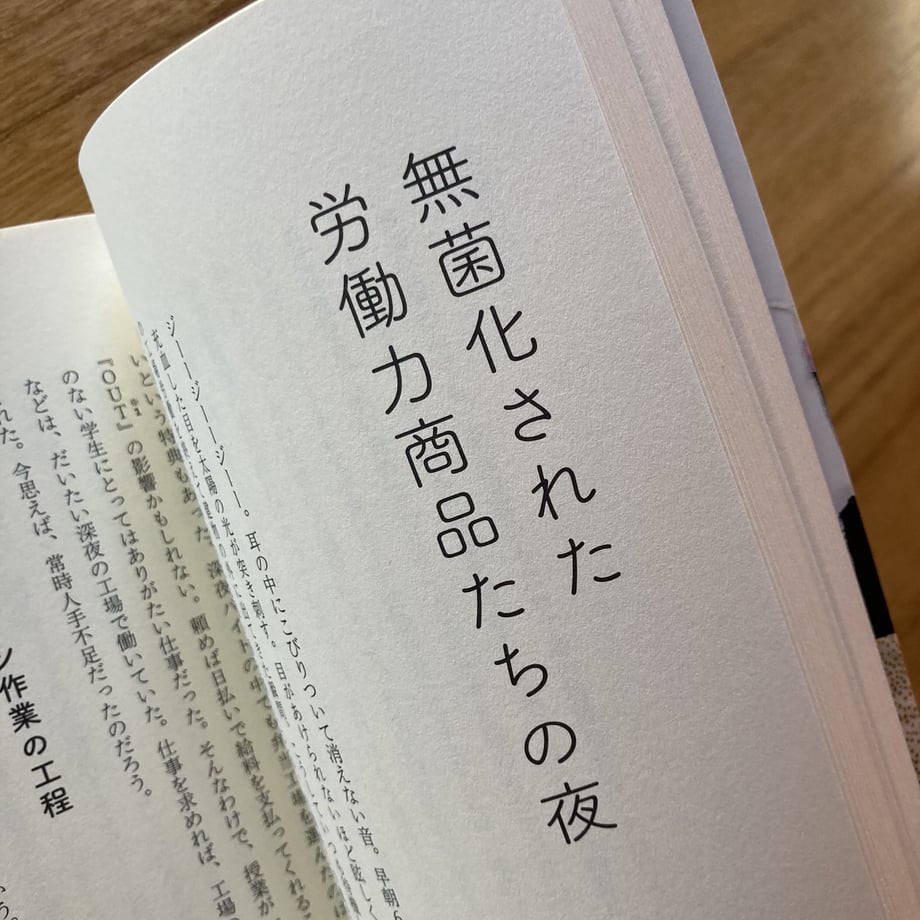 無菌化された
労働力商品たちの夜
ジージージージー。耳の中にこびりついて消えない音。早朝6
充血した目を太陽の光が突き刺す。目があけられないほど眩しく
いという特典もあった。深夜バイトの中でも弁当工場を選んだのは
『OUT』の影響かもしれない。頼めば日払いで給料を支払ってくれる
のない学生にとってはありがたい仕事だった。そんなわけで、授業が
などは、だいたい深夜の工場で働いていた。仕事を求めれば、工場の
れた。今思えば、常時人手不足だったのだろう。
ン作業の工程